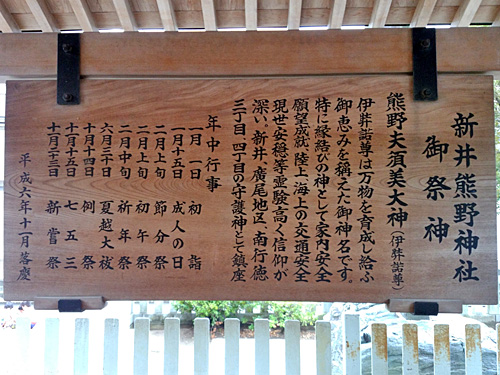 新井熊野神社
御祭神
熊野夫須美大神（伊弉諾尊）
伊弉諾尊は万物を育成し給ふ
御恵みを稱えた御神名です。
特に縁結びの神として家内安全
願望成就、陸上、海上の交通安全
現世安穏等霊験高く信仰が
深い、新井、廣尾地区、南行徳
三丁目、四丁目の守護神として鎮座
年中行事
一月一日 初詣
一月十五日 成人の日
二月上旬 節分祭
二月上旬 初午祭
二月中旬 祈年祭
六月三十日 夏越大祓
十月十四日 例祭
十一月十五日 七五三
十一月二十三日 新嘗祭
平成六年十一月落慶